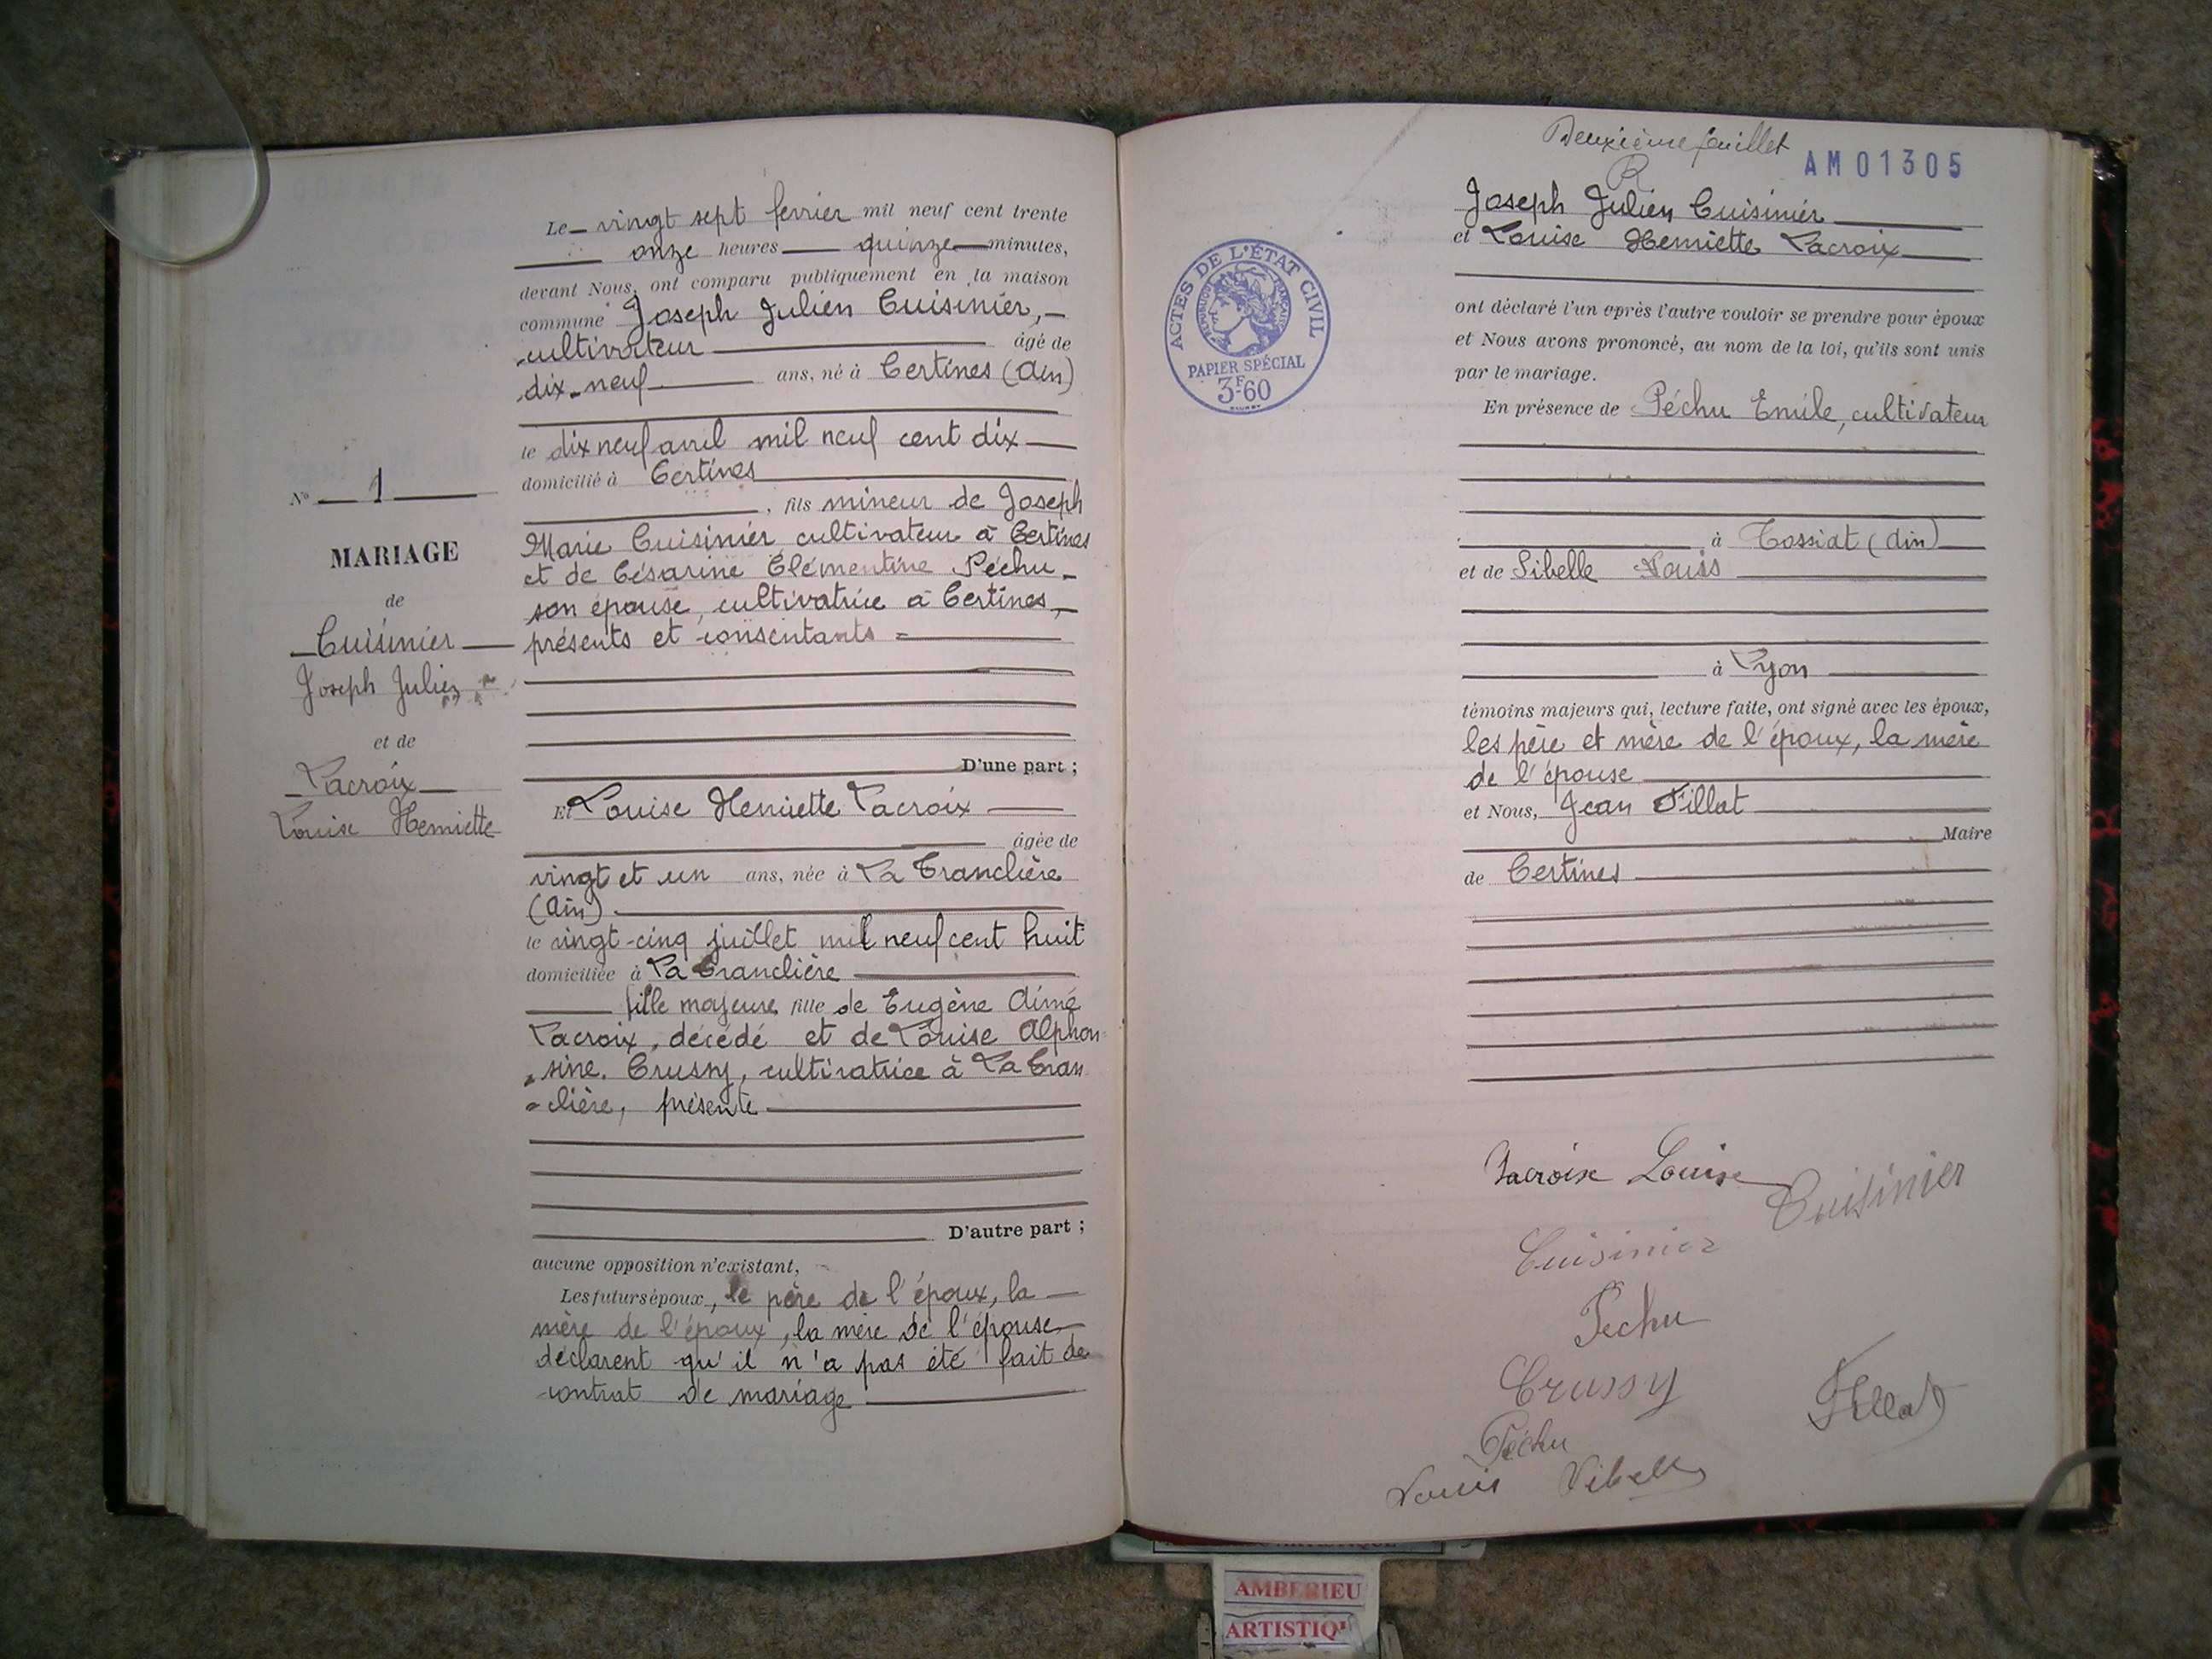 Le vingt sept fevrier mil neuf cent trente
onze heures quinze minutes,
devant Nous, ont comparu publiquement en la maison
commune Joseph Julien Cuisinier,
cultivateur âgé de
dix-neuf ans, né à Certines (Ain)
le dix neuf avril mil neuf cent dix
domicilié à Certines
, fils mineur de Joseph
Marie Cuisinier cultivateur à Certines
et de Césarine Clémentine Péchu
son épouse, cultivatrice à Certines,
présents et consentants =
D'une part ;
Et Louise Henriette Lacroix
âgée de
vingt et un ans, née à La Tranclière
(Ain).
le vingt-cinq juillet mil neuf cent huit
domiciliée à La Tranclière
fille majeure fille de Eugène Aimé
Lacroix, décédé et de Louise Alphon
sine. Crussy, cultivatrice à La Tran
=clière, présente
D'autre part ;
aucune opposition n'existant,
Les futurs époux, le père de l'époux, la
mère de l'époux, la mère de l'épouse
déclarent qu'il n'a pas été fait de
contrat de mariage
N° 1
MARIAGE
de
Cuisinier
Joseph Julien
et de
Lacroix
Louise Henriette
Deuxième feuillet
AM01305
R
Joseph Julien Cuisinier
et Louise Henriette Lacroix
ACTES DE L'ÉTAT CIVIL
RÉPUBLIQUE FRANÇAISE
PAPIER SPÉCIAL
3F-60
ont déclaré l'un après l'autre vouloir se prendre pour époux
et Nous avons prononcé, au nom de la loi, qu'ils sont unis
par le mariage.
En présence de Péchu Emile, cultivateur
à Tossiat (Ain)
et de Sibelle Louis
à Lyon
témoins majeurs qui, lecture faite, ont signé avec les époux,
les père et mère de l'époux, la mère
de l'épouse
et Nous, Jean Tillat
Maire
de Certines
Lacroix Louise
Cuisinier
Cuisinier
Péchu
Crussy
Tillat
Péchu
Louis Sibelle
AMBERIEU
ARTISTIQU